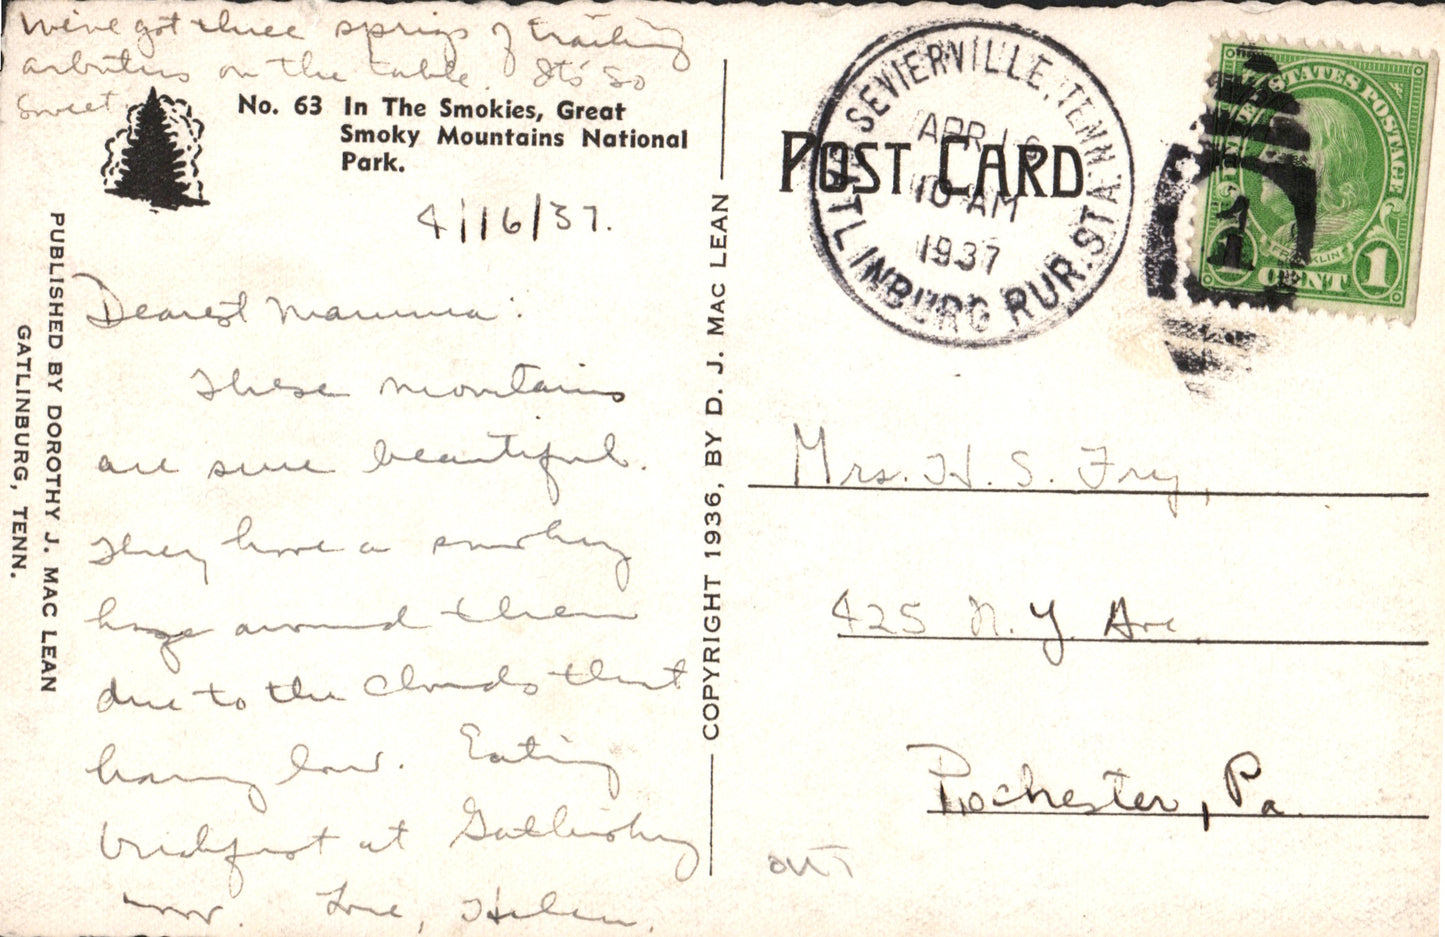 We've got three sprigs of trailing
arbutus on the table. It's so
sweet
No. 63 In The Smokies, Great
Smoky Mountains National
Park.
4/16/37.
Dearest Mamma:
These mountains
are sure beautiful.
They have a smokey
haze around them
due to the clouds that
hang low. Eating
brickfust at Gatlinsburg
now. Love, Helen.
PUBLISHED BY DOROTHY J. MAC LEAN
GATLINBURG, TENN.
COPYRIGHT 1936, BY D. J. MAC LEAN
POST CARD
SEVIERVILLE, TENN.
GATLINBURG RUR. STA.
APR 16
10 AM
1937
U. STATES POSTAGE
1
FRANKLIN
1 CENT 1
Mrs. H. S. Fry,
425 N. Y. Ave.
Rochester, Pa.
OUT